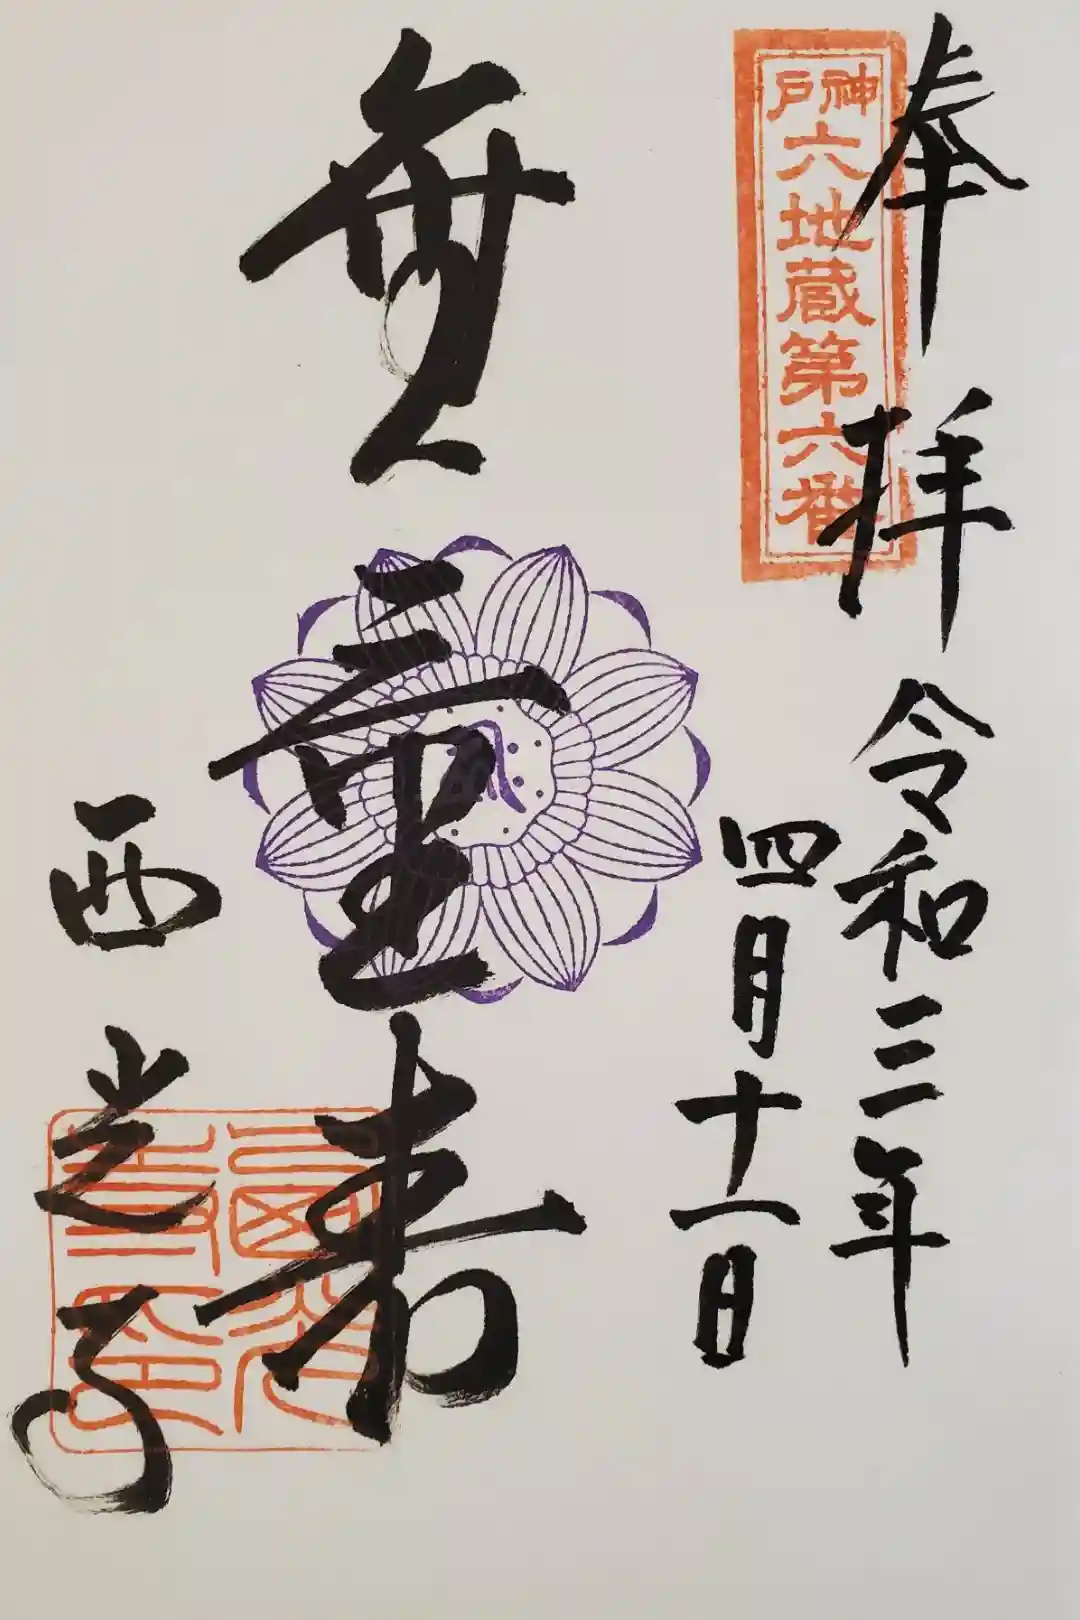 奉拝
神戸六地蔵第六番
令和三年
四月十一日
無量寿
西光寺